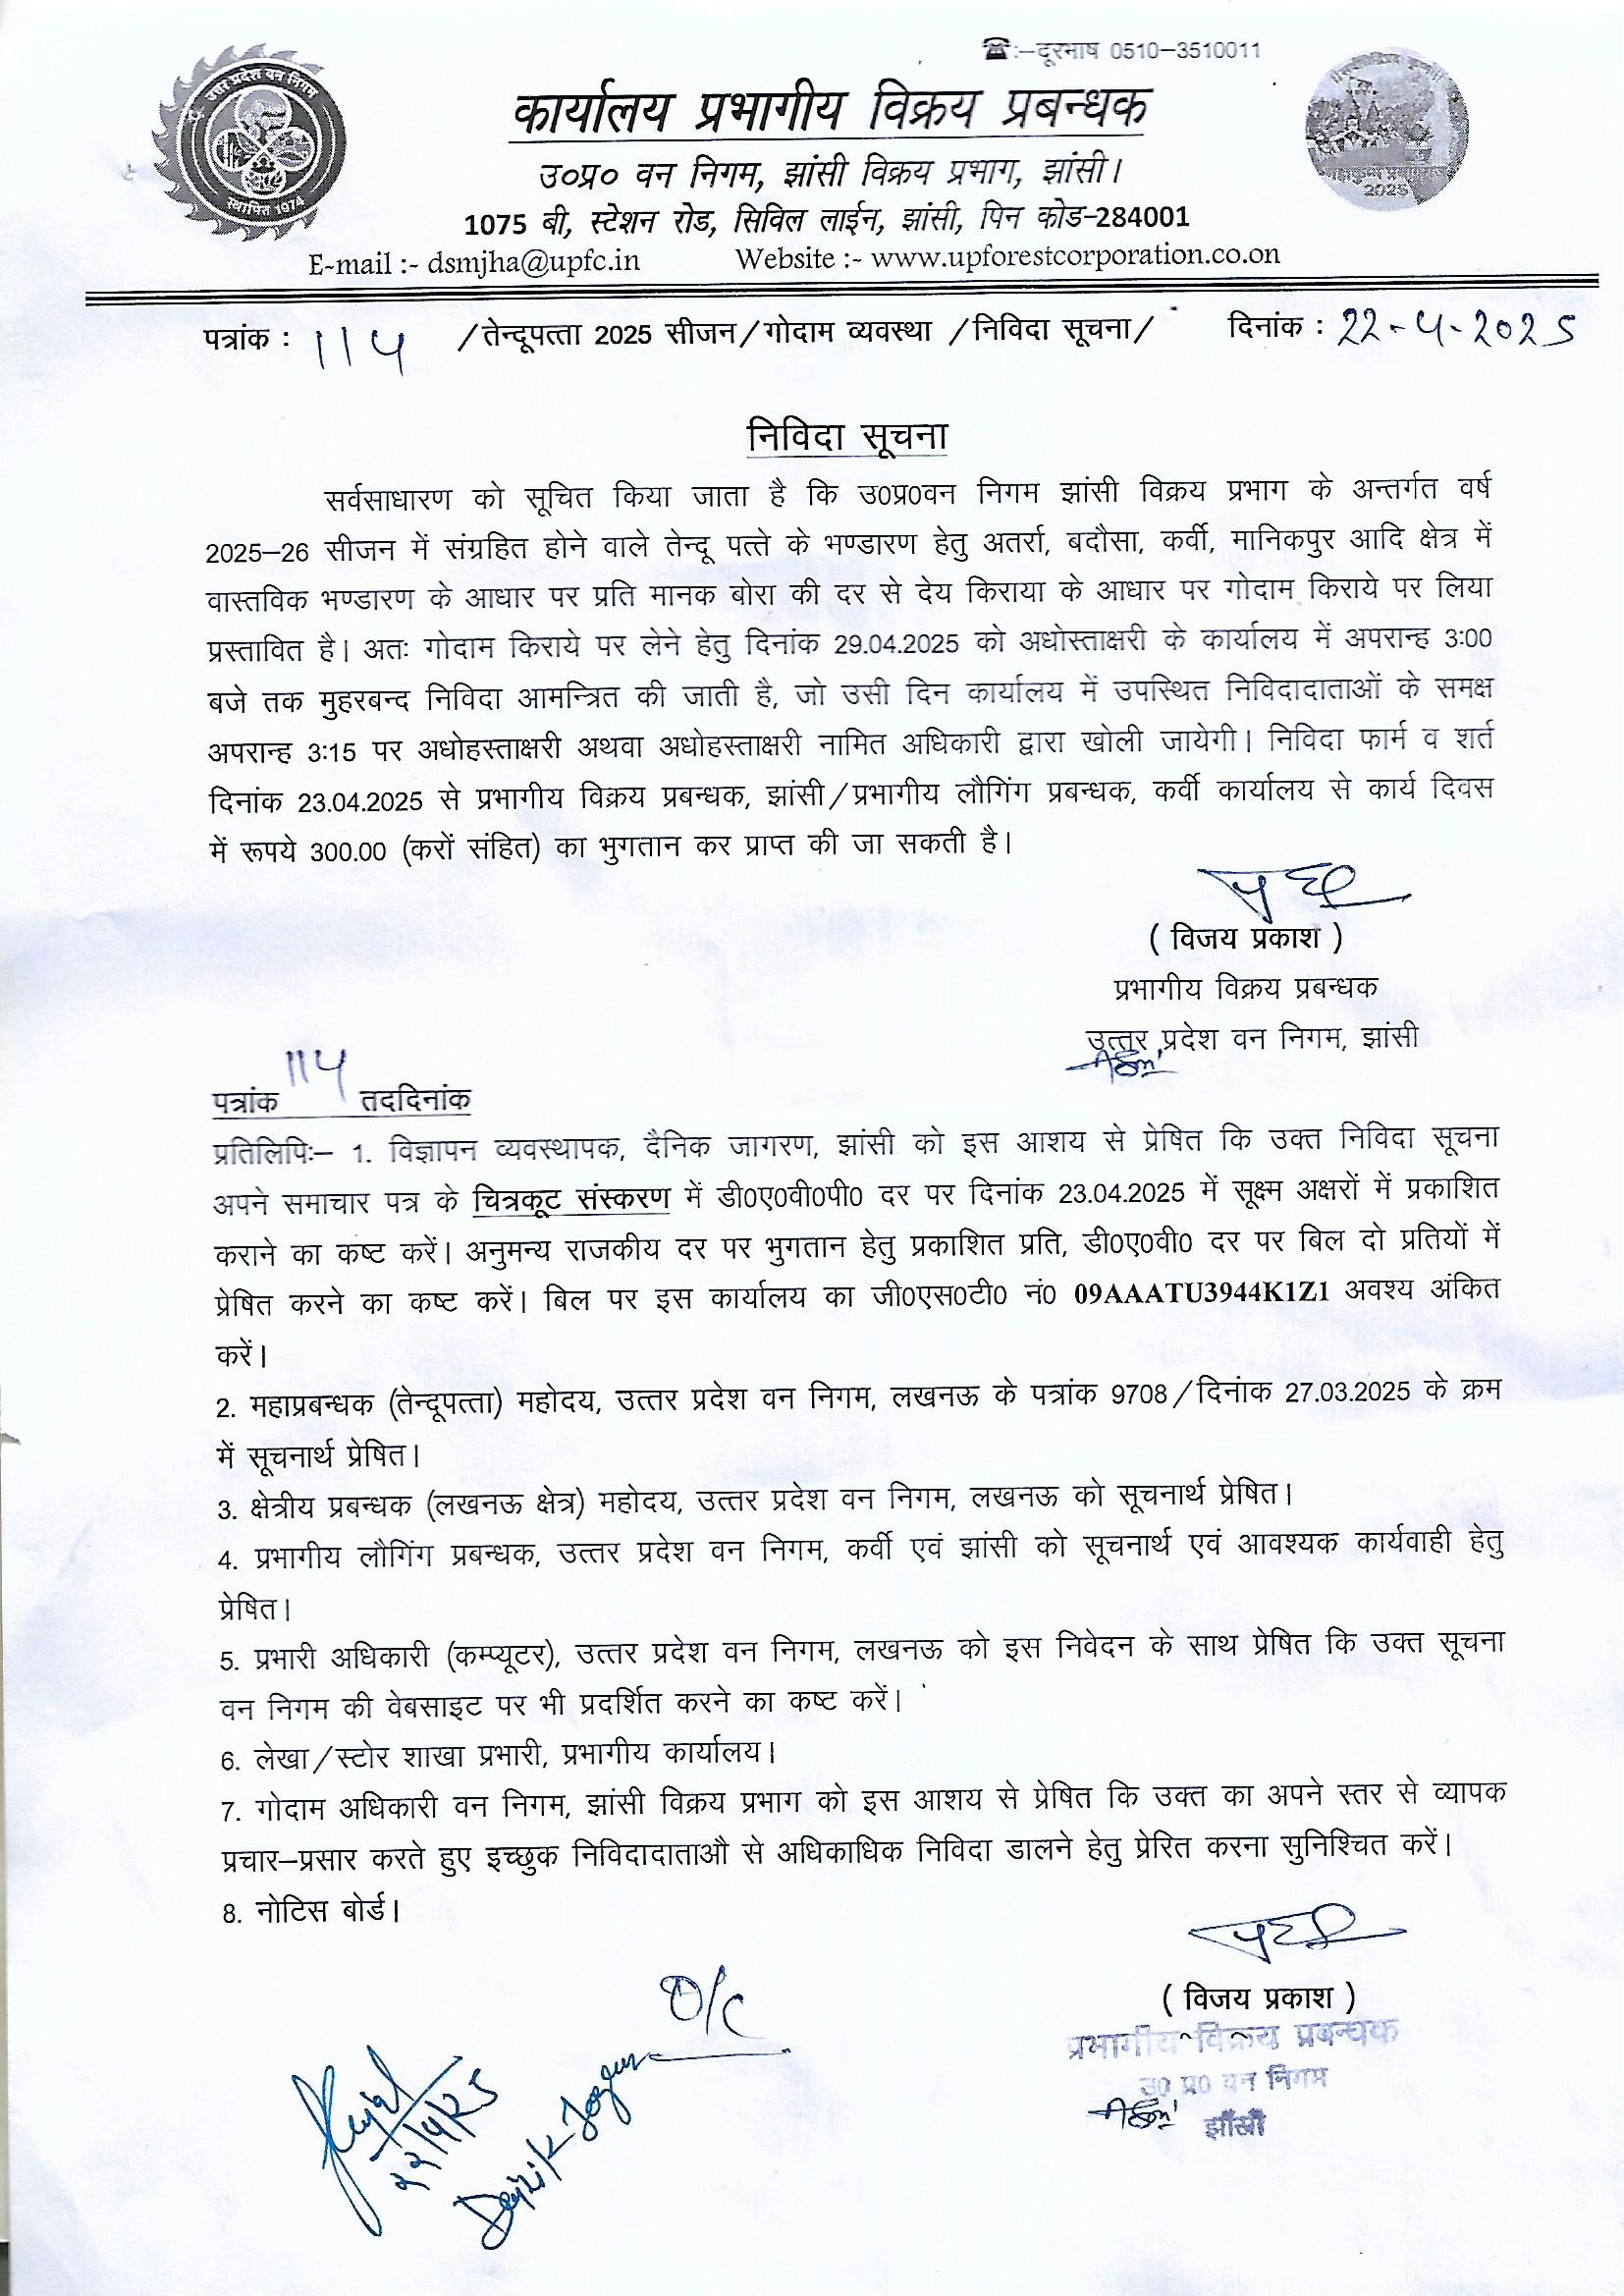 ☎:–दूरभाष 0510–3510011
उत्तर प्रदेश वन निगम
स्थापित 1974
2025
कार्यालय प्रभागीय विक्रय प्रबन्धक
उ०प्र० वन निगम, झांसी विक्रय प्रभाग, झांसी।
1075 बी, स्टेशन रोड, सिविल लाईन, झांसी, पिन कोड–284001
E-mail :- dsmjha@upfc.in Website :- www.upforestcorporation.co.on
पत्रांक : 114 /तेन्दूपत्ता 2025 सीजन/गोदाम व्यवस्था /निविदा सूचना/ दिनांक : 22-4-2025
निविदा सूचना
सर्वसाधारण को सूचित किया जाता है कि उ0प्र0वन निगम झांसी विक्रय प्रभाग के अन्तर्गत वर्ष
2025–26 सीजन में संग्रहित होने वाले तेन्दू पत्ते के भण्डारण हेतु अतर्रा, बदौसा, कर्वी, मानिकपुर आदि क्षेत्र में
वास्तविक भण्डारण के आधार पर प्रति मानक बोरा की दर से देय किराया के आधार पर गोदाम किराये पर लिया
प्रस्तावित है। अतः गोदाम किराये पर लेने हेतु दिनांक 29.04.2025 को अधोस्ताक्षरी के कार्यालय में अपरान्ह 3:00
बजे तक मुहरबन्द निविदा आमन्त्रित की जाती है, जो उसी दिन कार्यालय में उपस्थित निविदादाताओं के समक्ष
अपरान्ह 3:15 पर अधोहस्ताक्षरी अथवा अधोहस्ताक्षरी नामित अधिकारी द्वारा खोली जायेगी। निविदा फार्म व शर्त
दिनांक 23.04.2025 से प्रभागीय विक्रय प्रबन्धक, झांसी/प्रभागीय लौगिंग प्रबन्धक, कर्वी कार्यालय से कार्य दिवस
में रूपये 300.00 (करों संहित) का भुगतान कर प्राप्त की जा सकती है।
( विजय प्रकाश )
प्रभागीय विक्रय प्रबन्धक
उत्तर प्रदेश वन निगम, झांसी
पत्रांक 114 तददिनांक
प्रतिलिपिः– 1. विज्ञापन व्यवस्थापक, दैनिक जागरण, झांसी को इस आशय से प्रेषित कि उक्त निविदा सूचना
अपने समाचार पत्र के चित्रकूट संस्करण में डी0ए0वी0पी0 दर पर दिनांक 23.04.2025 में सूक्ष्म अक्षरों में प्रकाशित
कराने का कष्ट करें। अनुमन्य राजकीय दर पर भुगतान हेतु प्रकाशित प्रति, डी0ए0वी0 दर पर बिल दो प्रतियों में
प्रेषित करने का कष्ट करें। बिल पर इस कार्यालय का जी0एस0टी0 नं0 09AAATU3944K1Z1 अवश्य अंकित
करें।
2. महाप्रबन्धक (तेन्दूपत्ता) महोदय, उत्तर प्रदेश वन निगम, लखनऊ के पत्रांक 9708/दिनांक 27.03.2025 के क्रम
में सूचनार्थ प्रेषित।
3. क्षेत्रीय प्रबन्धक (लखनऊ क्षेत्र) महोदय, उत्तर प्रदेश वन निगम, लखनऊ को सूचनार्थ प्रेषित।
4. प्रभागीय लौगिंग प्रबन्धक, उत्तर प्रदेश वन निगम, कर्वी एवं झांसी को सूचनार्थ एवं आवश्यक कार्यवाही हेतु
प्रेषित।
5. प्रभारी अधिकारी (कम्प्यूटर), उत्तर प्रदेश वन निगम, लखनऊ को इस निवेदन के साथ प्रेषित कि उक्त सूचना
वन निगम की वेबसाइट पर भी प्रदर्शित करने का कष्ट करें।
6. लेखा/स्टोर शाखा प्रभारी, प्रभागीय कार्यालय।
7. गोदाम अधिकारी वन निगम, झांसी विक्रय प्रभाग को इस आशय से प्रेषित कि उक्त का अपने स्तर से व्यापक
प्रचार–प्रसार करते हुए इच्छुक निविदादाताऔ से अधिकाधिक निविदा डालने हेतु प्रेरित करना सुनिश्चित करें।
8. नोटिस बोर्ड।
( विजय प्रकाश )
प्रभागीय विक्रय प्रबन्धक
उ0 प्र0 वन निगम
झाँसी
O/C
22/4/25